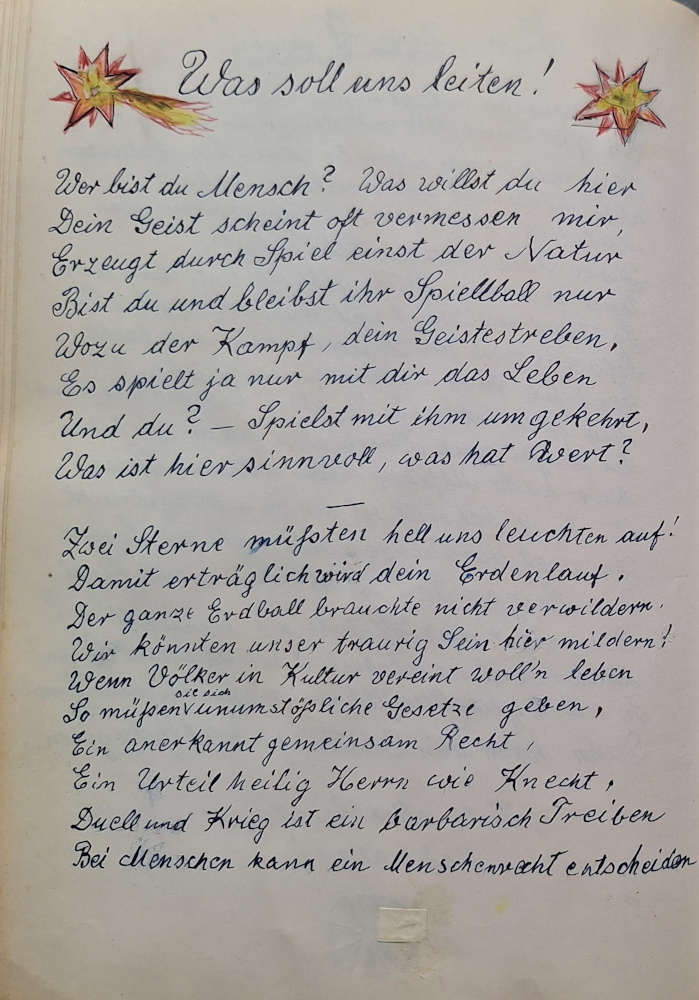 Was soll uns leiten!
Wer bist du Mensch? Was willst du hier
Dein Geist scheint oft vermessen mir,
Erzeugt durch Spiel einst der Natur
Bist du und bleibst ihr Spiellball nur
Wozu der Kampf, dein Geistestreben,
Es spielt ja nur mit dir das Leben
Und du? – Spielst mit ihm umgekehrt,
Was ist hier sinnvoll, was hat Wert?
—
Zwei Sterne müßten hell uns leuchten auf!
Damit erträglich wird dein Erdenlauf.
Der ganze Erdball brauchte nicht verwildern.
Wir könnten unser traurig Sein hier mildern!
Wenn Völker in Kultur vereint woll'n leben
sie sich
So müßen v unumstößliche Gesetze geben,
Ein anerkannt gemeinsam Recht,
Ein Urteil heilig Herrn wie Knecht,
Duell und Krieg ist ein barbarisch Treiben
Bei Menschen kann ein Menschenrecht entscheiden